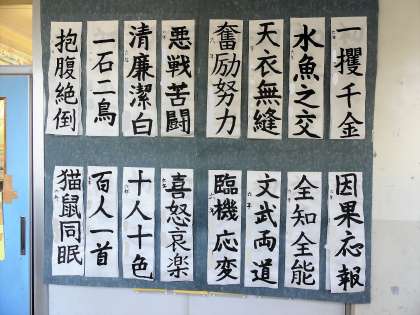 一攫千金
水魚之交
天衣無縫
奮励努力
悪戦苦闘
清廉潔白
一石二鳥
抱腹絶倒
因果応報
全知全能
文武両道
臨機応変
喜怒哀楽
十人十色
百人一首
猫鼠同眠